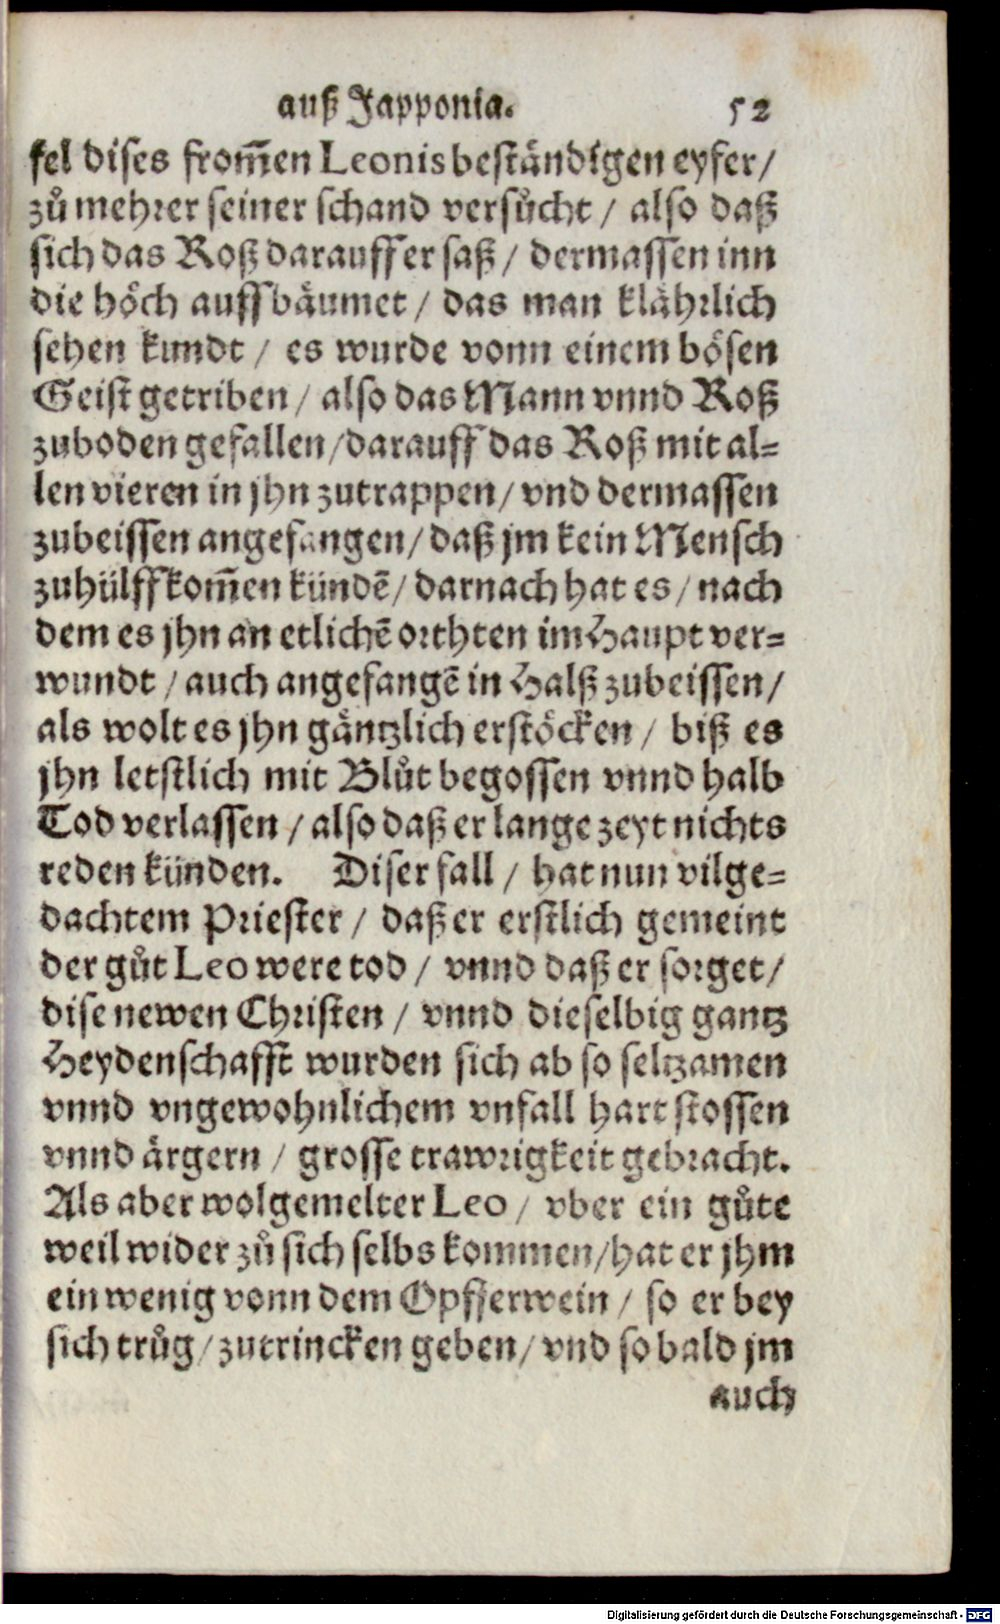 auß Japponia. 52
fel dises from̃en Leonis beständigen eyfer/
zů mehrer seiner schand versůcht / also daß
sich das Roß darauff er saß / dermassen inn
die höch auffbäumet / das man klährlich
sehen kundt / es wurde vonn einem bösen
Geist getriben / also das Mann vnnd Roß
zuboden gefallen/darauff das Roß mit al⸗
len vieren in jhn zutrappen/ vnd dermassen
zubeissen angefangen/ daß jm kein Mensch
zuhülff kom̃en kündẽ/ darnach hat es / nach
dem es jhn an etlichẽ orthten im Haupt ver⸗
wundt / auch angefangẽ in Halß zubeissen/
als wolt es jhn gäntzlich erstöcken / biß es
jhn letstlich mit Blůt begossen vnnd halb
Tod verlassen / also daß er lange zeyt nichts
reden künden. Diser fall / hat nun vilge⸗
dachtem Priester / daß er erstlich gemeint
der gůt Leo were tod / vnnd daß er sorget/
dise newen Christen / vnnd dieselbig gantz
Heydenschafft wurden sich ab so seltzamen
vnnd vngewohnlichem vnfall hart stossen
vnnd ärgern / grosse trawrigkeit gebracht.
Als aber wolgemelter Leo / vber ein gůte
weil wider zů sich selbs kommen/hat er jhm
ein wenig vonn dem Opfferwein / so er bey
sich trůg/ zutrincken geben/ vnd so bald jm
auch
Digitalisierung gefördert durch die Deutsche Forschungsgemeinschaft - DFG